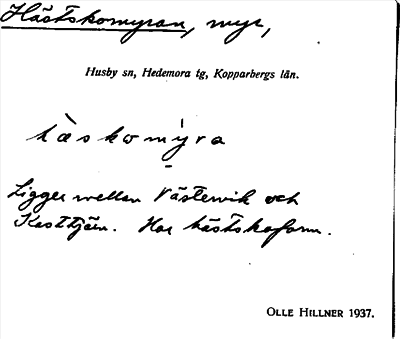 Hästskomyran, myr,
Husby sn, Hedemora tg, Kopparbergs län.
hæskomýra
Ligger mellan Västervik och
Kasttjärn. Har hästskoform.
OLLE HILLNER 1937.